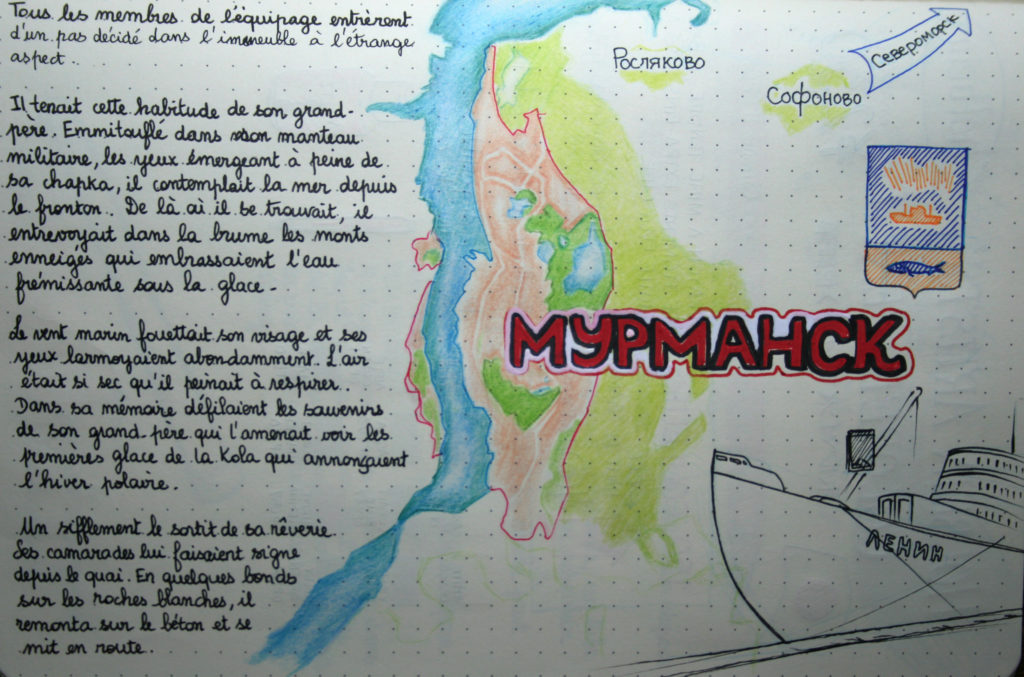 Tous les membres de l'équipage entrèrent
d'un pas décidé dans l'immeuble à l'étrange
aspect.
Il tenait cette habitude de son grand-
père. Emmitouflé dans son manteau
militaire, les yeux émergeant à peine de
sa chapka, il contemplait la mer depuis
le fronton. De là où il se trouvait, il
entrevoyait dans la brume les monts
enneigés qui embrassaient l'eau
frémissante sous la glace.
Le vent marin fouettait son visage et ses
yeux larmoyaient abondamment. L'air
était si sec qu'il peinait à respirer.
Dans sa mémoire défilaient les souvenirs
de son grand-père qui l'amenait voir les
premières glace de la Kola qui annonçaient
l'hiver polaire.
Un sifflement le sortit de sa rêverie.
Ses camarades lui faisaient signe
depuis le quai. En quelques bonds
sur les roches blanches, il
remonta sur le béton et se
mit en route.
Росляково
Североморск
Софоново
МУРМАНСК
ЛЕНИН